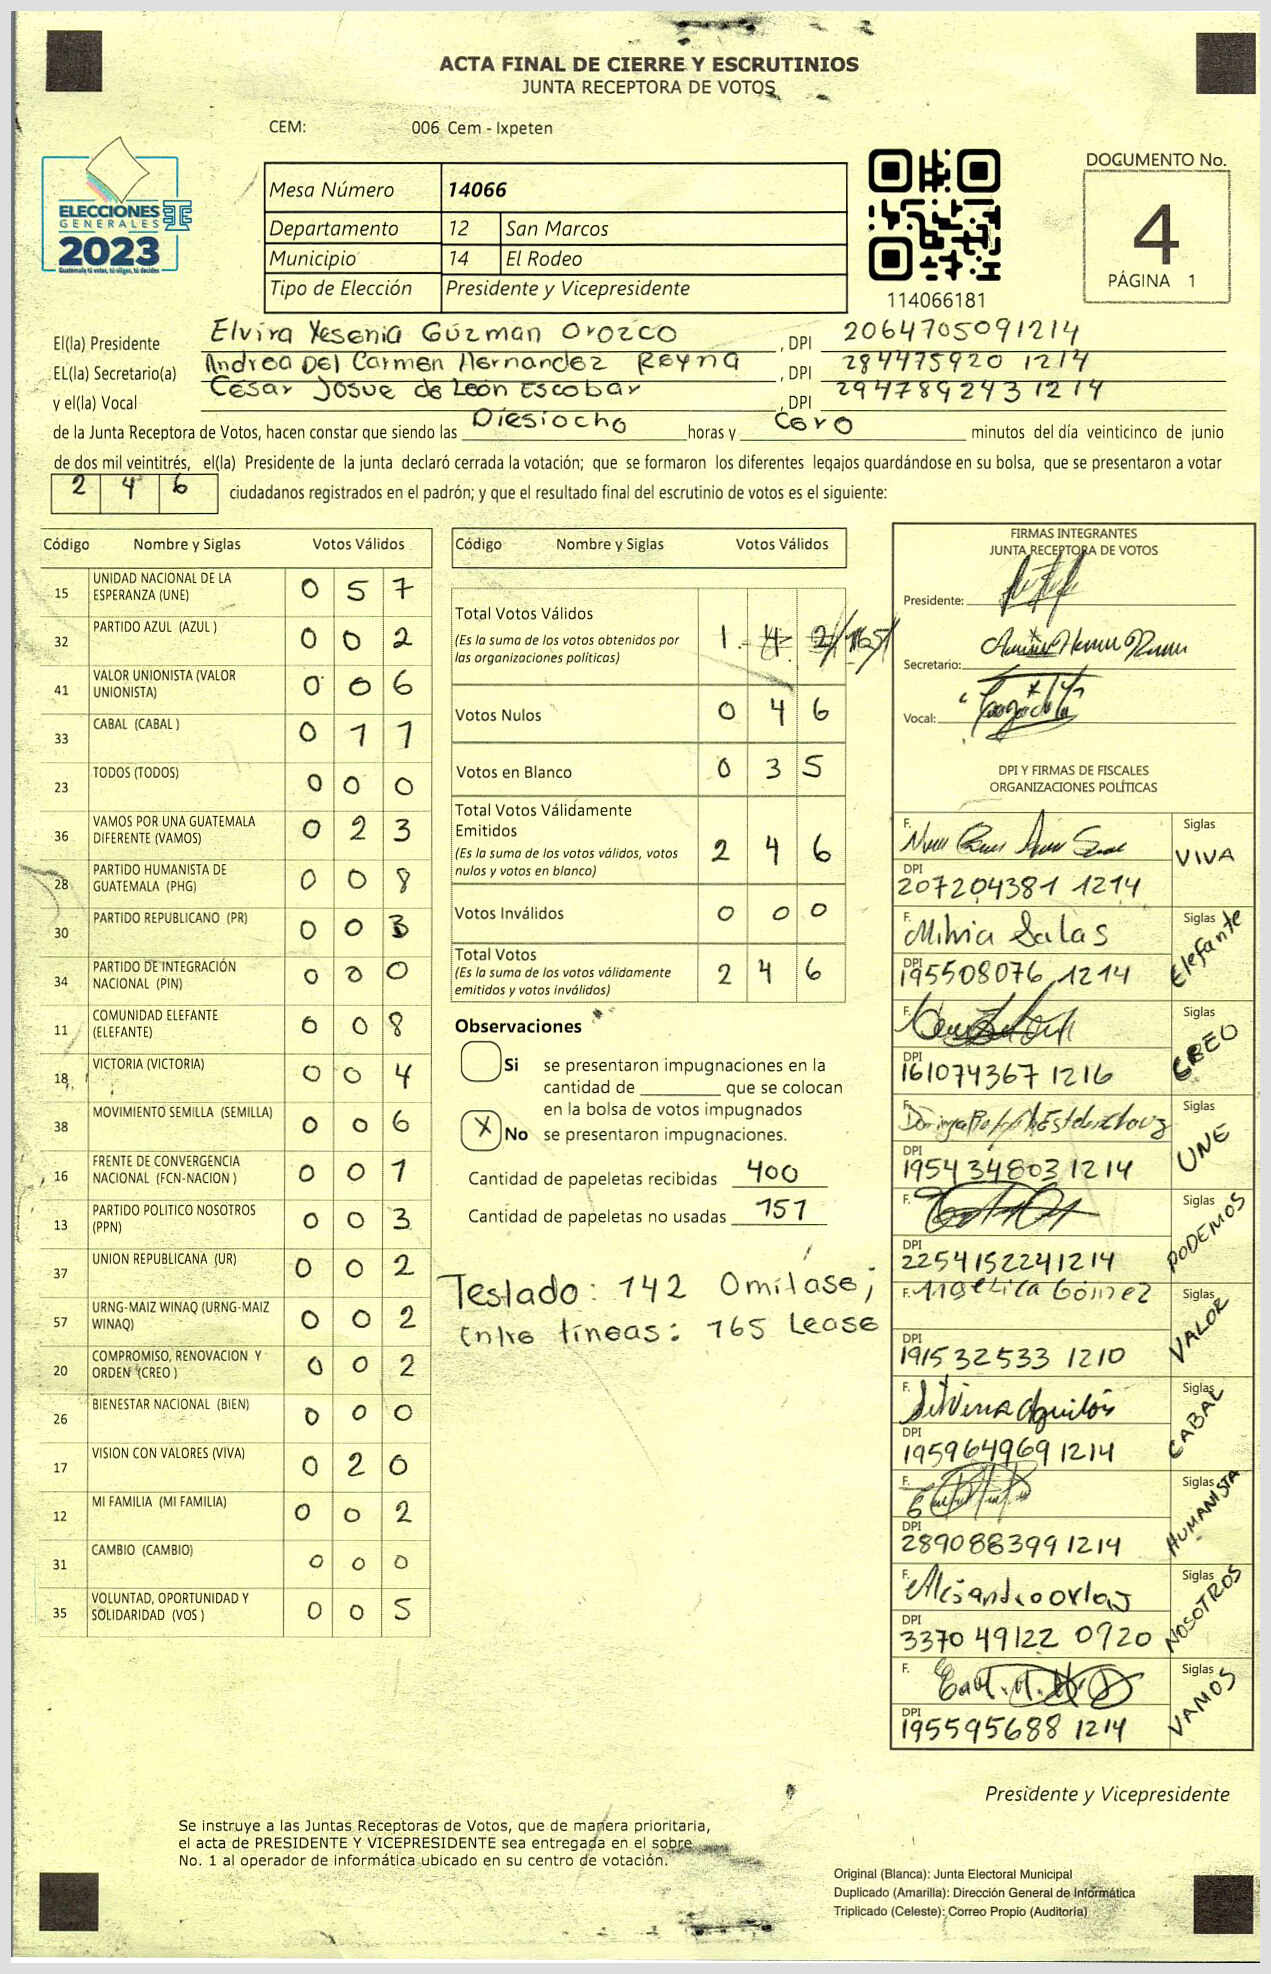 ACTA FINAL DE CIERRE Y ESCRUTINIOS
JUNTA RECEPTORA DE VOTOS
CEM: 006 Cem - Ixpeten
ELECCIONES
GENERALES
2023
Guatemala tú votas, tú eliges, tú decides
Mesa Número 14066
Departamento 12 San Marcos
Municipio 14 El Rodeo
Tipo de Elección Presidente y Vicepresidente
114066181
DOCUMENTO No.
4
PÁGINA 1
El(la) Presidente Elvira Yesenia Guzman Orozco , DPI 2064705091214
EL(la) Secretario(a) Andrea Del Carmen Hernandez Reyna , DPI 284475920 1214
y el(la) Vocal César Josue de León Escobar , DPI 294789243 1214
de la Junta Receptora de Votos, hacen constar que siendo las Diesiocho horas y Cero minutos del día veinticinco de junio
de dos mil veintitrés, el(la) Presidente de la junta declaró cerrada la votación; que se formaron los diferentes legajos guardándose en su bolsa, que se presentaron a votar
2 4 6 ciudadanos registrados en el padrón; y que el resultado final del escrutinio de votos es el siguiente:
Código Nombre y Siglas Votos Válidos
15 UNIDAD NACIONAL DE LA ESPERANZA (UNE) 0 5 7
32 PARTIDO AZUL (AZUL ) 0 0 2
41 VALOR UNIONISTA (VALOR UNIONISTA) 0 0 6
33 CABAL (CABAL ) 0 1 1
23 TODOS (TODOS) 0 0 0
36 VAMOS POR UNA GUATEMALA DIFERENTE (VAMOS) 0 2 3
28 PARTIDO HUMANISTA DE GUATEMALA (PHG) 0 0 8
30 PARTIDO REPUBLICANO (PR) 0 0 3
34 PARTIDO DE INTEGRACIÓN NACIONAL (PIN) 0 0 0
11 COMUNIDAD ELEFANTE (ELEFANTE) 0 0 8
18 VICTORIA (VICTORIA) 0 0 4
38 MOVIMIENTO SEMILLA (SEMILLA) 0 0 6
16 FRENTE DE CONVERGENCIA NACIONAL (FCN-NACION ) 0 0 1
13 PARTIDO POLITICO NOSOTROS (PPN) 0 0 3
37 UNION REPUBLICANA (UR) 0 0 2
57 URNG-MAIZ WINAQ (URNG-MAIZ WINAQ) 0 0 2
20 COMPROMISO, RENOVACION Y ORDEN (CREO ) 0 0 2
26 BIENESTAR NACIONAL (BIEN) 0 0 0
17 VISION CON VALORES (VIVA) 0 2 0
12 MI FAMILIA (MI FAMILIA) 0 0 2
31 CAMBIO (CAMBIO) 0 0 0
35 VOLUNTAD, OPORTUNIDAD Y SOLIDARIDAD (VOS ) 0 0 5
Código Nombre y Siglas Votos Válidos
Total Votos Válidos 1 4 2 /165/
(Es la suma de los votos obtenidos por
las organizaciones politicas)
Votos Nulos 0 4 6
Votos en Blanco 0 3 5
Total Votos Válidamente
Emitidos 2 4 6
(Es la suma de los votos válidos, votos
nulos y votos en blanco)
Votos Inválidos 0 0 0
Total Votos 2 4 6
(Es la suma de los votos válidamente
emitidos y votos inválidos)
Observaciones
Si se presentaron impugnaciones en la
cantidad de ________ que se colocan
en la bolsa de votos impugnados
X No se presentaron impugnaciones.
Cantidad de papeletas recibidas 400
Cantidad de papeletas no usadas 151
Testado: 142 Omitase;
Entre lineas: 165 Lease
FIRMAS INTEGRANTES
JUNTA RECEPTORA DE VOTOS
Presidente:
Secretario:
Vocal:
DPI Y FIRMAS DE FISCALES
ORGANIZACIONES POLÍTICAS
F. Siglas VIVA
DPI 207204381 1214
F. Milvia Salas Siglas Elefante
DPI 195508076 1214
F. Siglas CREO
DPI 161074367 1216
F. Siglas UNE
DPI 195434803 1214
F. Siglas PODEMOS
DPI 2254152241214
F. Angelica Gómez Siglas VALOR
DPI 191532533 1210
F. Silvina Aguilón Siglas CABAL
DPI 195964969 1214
F. Siglas HUMANISTA
DPI 289088399 1214
F. Alejandro Siglas NOSOTROS
DPI 3370 49122 0920
F. Siglas VAMOS
DPI 195595688 1214
Presidente y Vicepresidente
Se instruye a las Juntas Receptoras de Votos, que de manera prioritaria,
el acta de PRESIDENTE Y VICEPRESIDENTE sea entregada en el sobre
No. 1 al operador de informática ubicado en su centro de votación.
Original (Blanca): Junta Electoral Municipal
Duplicado (Amarilla): Dirección General de Informática
Triplicado (Celeste): Correo Propio (Auditoría)